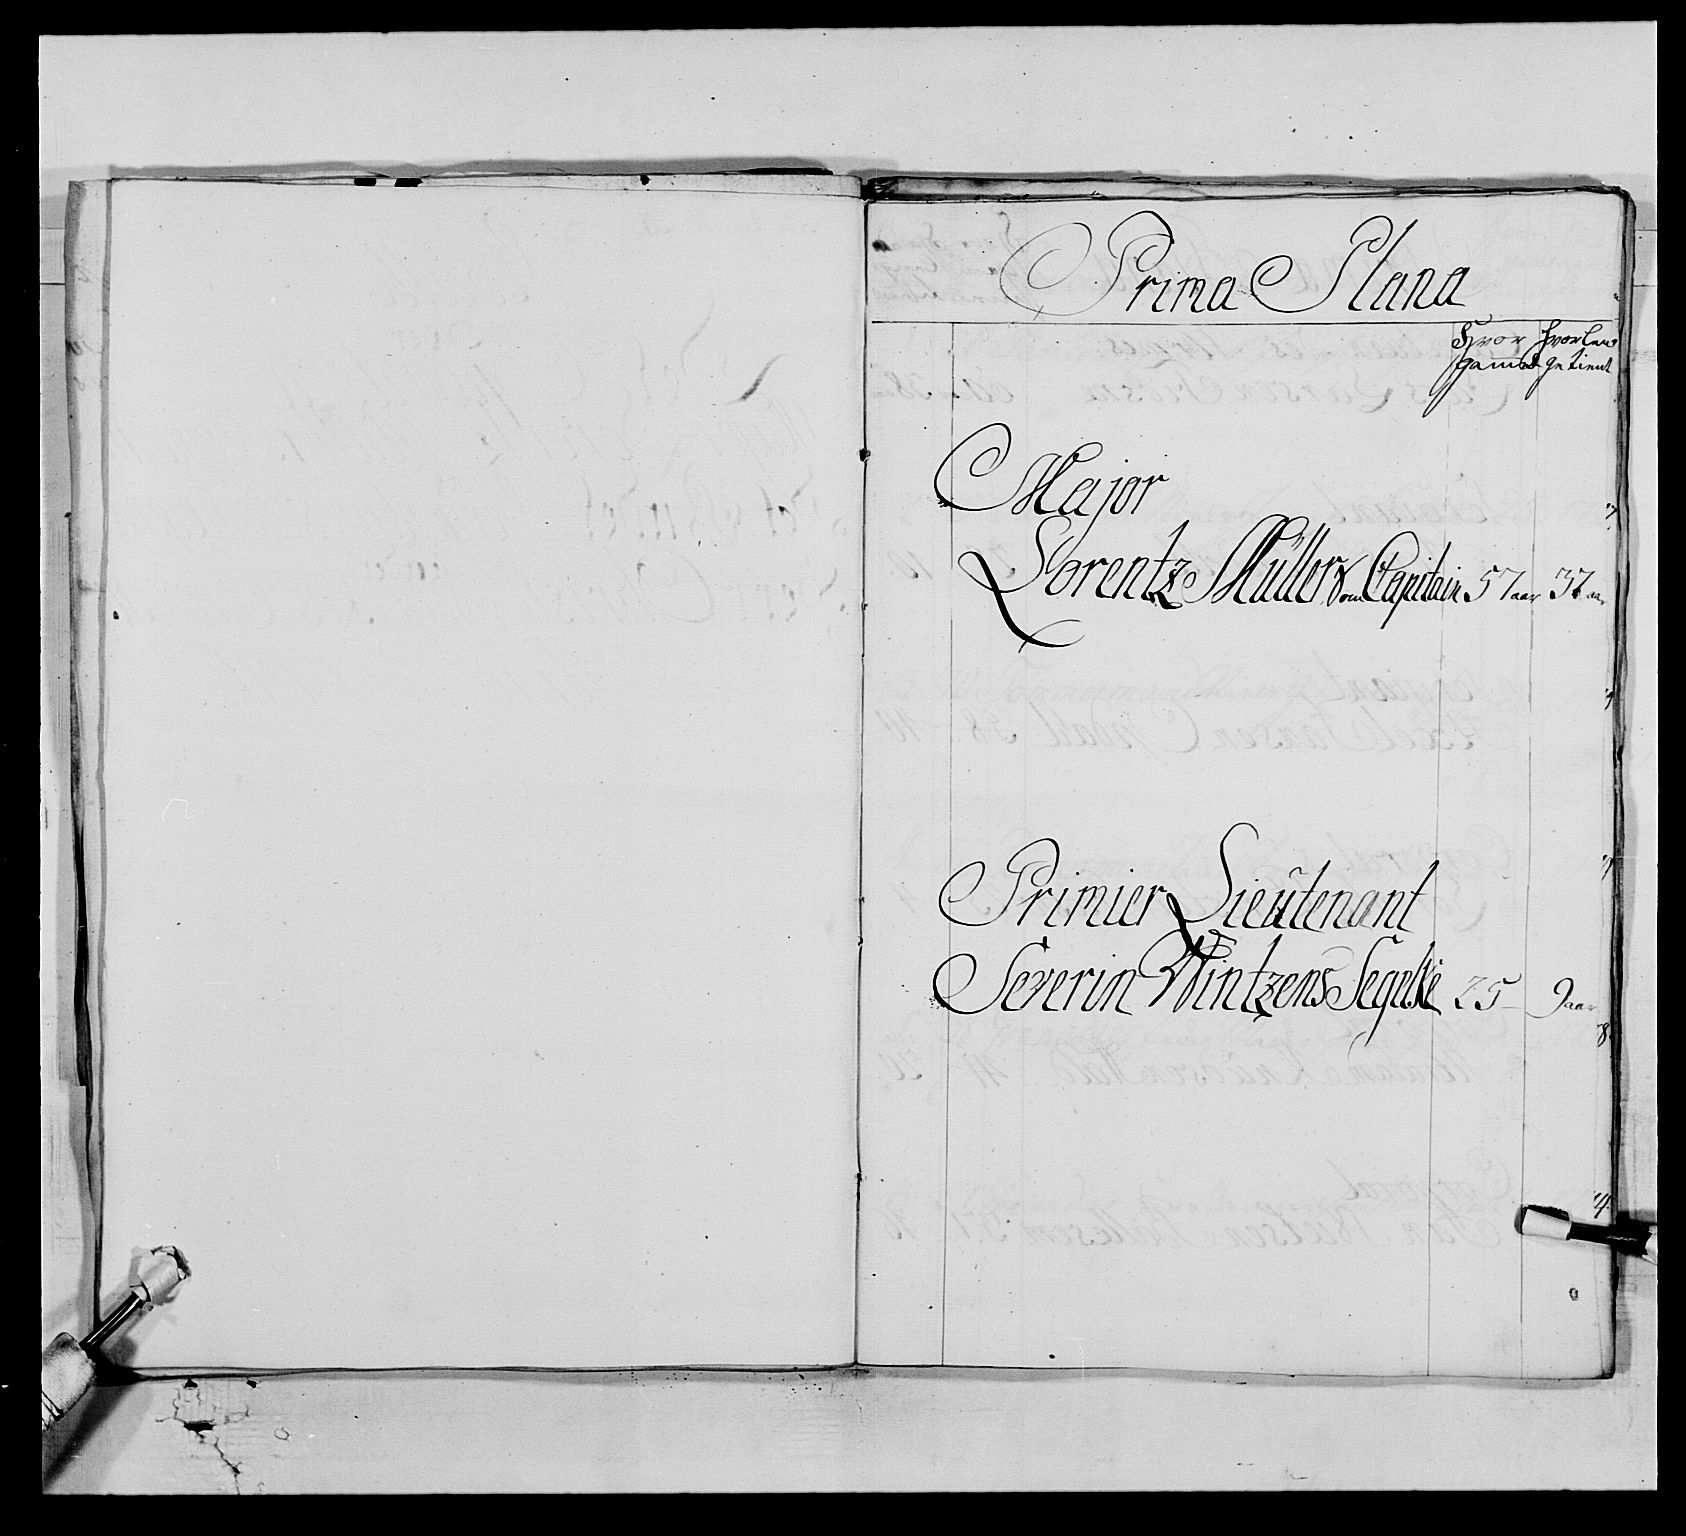 Prima Plana
Hvor gamel
hvorleng getient
Major
Lorentz Müller som Capitain 57 aar 37 aar
Primier Lieutenant
Severin Wintzens Segelke 25 – 9 aar